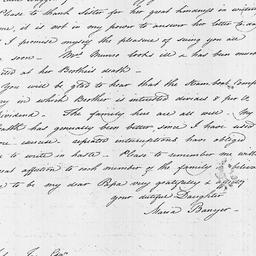 Please to thank Sister for her great kindness in writing
me, it is not in my power to answer her letter to
I promise myself the pleasure of seeing you all
soon - Mr. Banyer looks ill - has been much
at his Brother's death -
You will be glad to hear that the Steam boat Comp
in which Brother is interested divides 8 pr Ct.
Dividend. The family here are all well. My
health has generally been better, since I have used
exercise. repeated interruptions have obliged
to write in haste - Please to remember me with
great affection to each member of the family & believe
me to be my dear Papa very gratefully &
your Daughter
Maria Banyer -